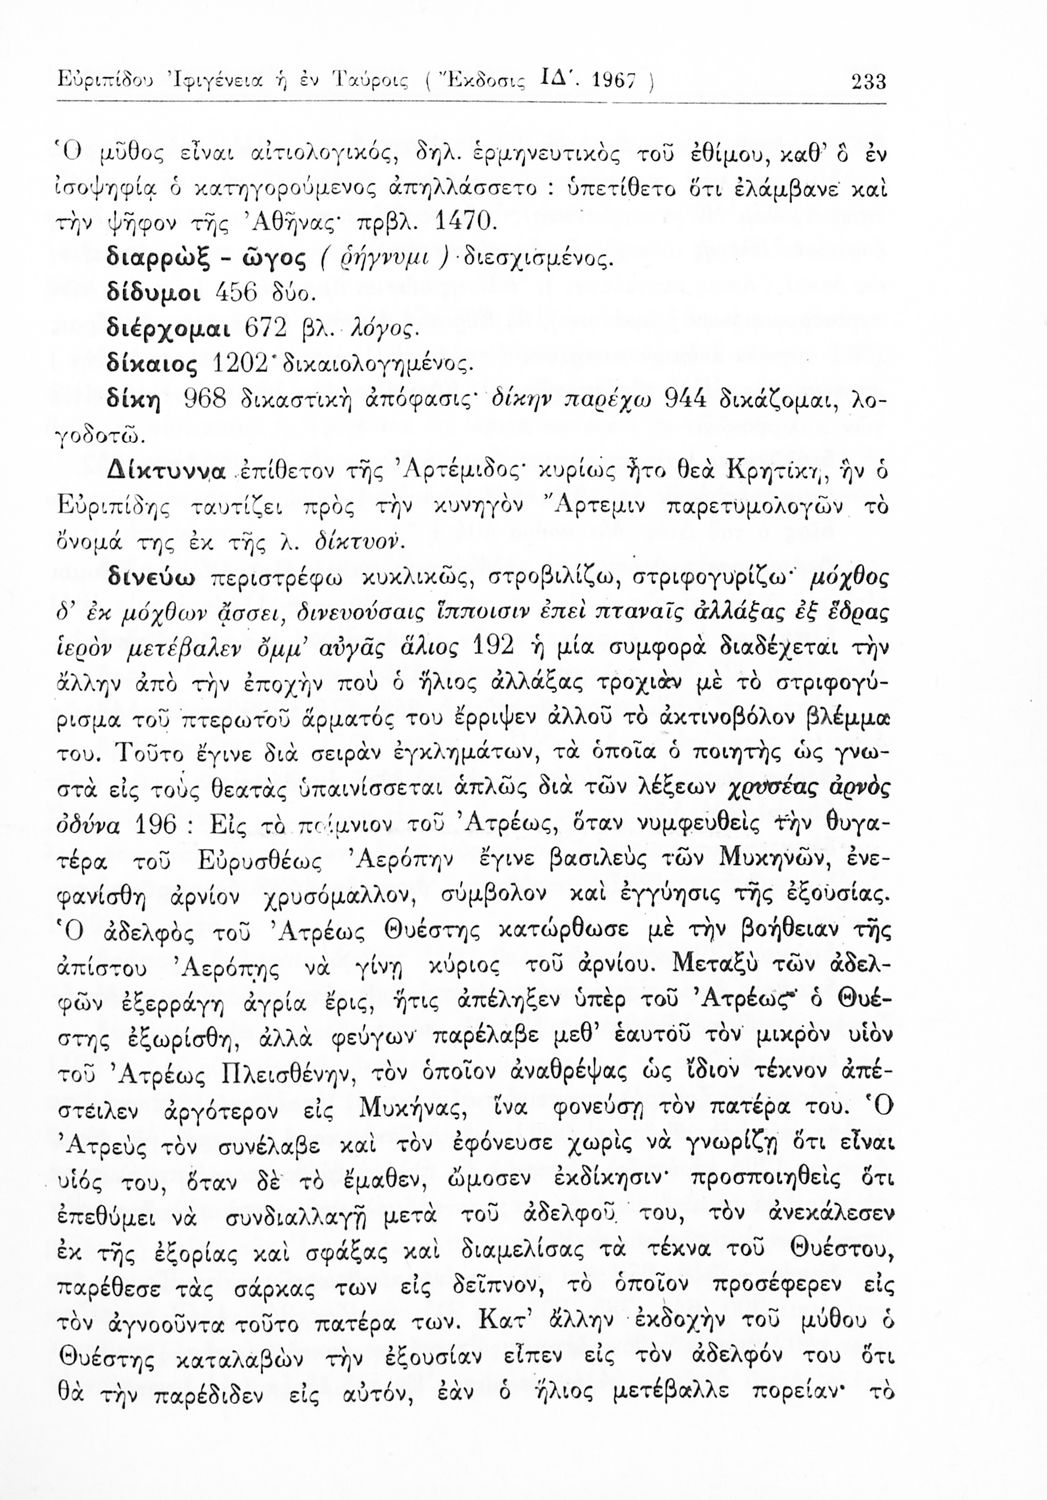 Εὐριπίδου Ἰφιγένεια ἡ ἐν Ταύροις ( Ἔκδοσις ΙΔ΄. 1967 ) 233
Ὁ μῦθος εἶναι αἰτιολογικός, δηλ. ἑρμηνευτικὸς τοῦ ἐθίμου, καθ’ ὃ ἐν
ἰσοψηφίᾳ ὁ κατηγορούμενος ἀπηλλάσσετο : ὑπετίθετο ὅτι ἐλάμβανε καὶ
τὴν ψῆφον τῆς Ἀθῆνας· πρβλ. 1470.
διαρρὼξ - ῶγος ( ῥήγνυμι ) διεσχισμένος.
δίδυμοι 456 δύο.
διέρχομαι 672 βλ. λόγος.
δίκαιος 1202· δικαιολογημένος.
δίκη 968 δικαστικὴ ἀπόφασις· δίκην παρέχω 944 δικάζομαι, λο-
γοδοτῶ.
Δίκτυννα ἐπίθετον τῆς Ἀρτέμιδος· κυρίως ἦτο θεὰ Κρητική, ἣν ὁ
Εὐριπίδης ταυτίζει πρὸς τὴν κυνηγὸν Ἄρτεμιν παρετυμολογῶν τὸ
ὄνομά της ἐκ τῆς λ. δίκτυον.
δινεύω περιστρέφω κυκλικῶς, στροβιλίζω, στριφογυρίζω· μόχθος
δ’ ἐκ μόχθων ᾄσσει, δινευούσαις ἵπποισιν ἐπεὶ πταναῖς ἀλλάξας ἐξ ἕδρας
ἱερὸν μετέβαλεν ὄμμ’ αὐγᾶς ἅλιος 192 ἡ μία συμφορὰ διαδέχεται τὴν
ἄλλην ἀπὸ τὴν ἐποχὴν ποὺ ὁ ἥλιος ἀλλάξας τροχιὰν μὲ τὸ στριφογύ-
ρισμα τοῦ πτερωτοῦ ἅρματός του ἔρριψεν ἀλλοῦ τὸ ἀκτινοβόλον βλέμμα
του. Τοῦτο ἔγινε διὰ σειρὰν ἐγκλημάτων, τὰ ὁποῖα ὁ ποιητὴς ὡς γνω-
στὰ εἰς τοὺς θεατὰς ὑπαινίσσεται ἁπλῶς διὰ τῶν λέξεων χρυσέας ἀρνὸς
ὀδύνα 196 : Εἰς τὸ ποίμνιον τοῦ Ἀτρέως, ὅταν νυμφευθεὶς τὴν θυγα-
τέρα τοῦ Εὐρυσθέως Ἀερόπην ἔγινε βασιλεὺς τῶν Μυκηνῶν, ἐνε-
φανίσθη ἀρνίον χρυσόμαλλον, σύμβολον καὶ ἐγγύησις τῆς ἐξουσίας.
Ὁ ἀδελφὸς τοῦ Ἀτρέως Θυέστης κατώρθωσε μὲ τὴν βοήθειαν τῆς
ἀπίστου Ἀερόπης νὰ γίνῃ κύριος τοῦ ἀρνίου. Μεταξὺ τῶν ἀδελ-
φῶν ἐξερράγη ἀγρία ἔρις, ἥτις ἀπέληξεν ὑπὲρ τοῦ Ἀτρέως· ὁ Θυέ-
στης ἐξωρίσθη, ἀλλὰ φεύγων παρέλαβε μεθ’ ἑαυτοῦ τὸν μικρὸν υἱὸν
τοῦ Ἀτρέως Πλεισθένην, τὸν ὁποῖον ἀναθρέψας ὡς ἴδιον τέκνον ἀπέ-
στειλεν ἀργότερον εἰς Μυκήνας, ἵνα φονεύσῃ τὸν πατέρα του. Ὁ
Ἀτρεὺς τὸν συνέλαβε καὶ τὸν ἐφόνευσε χωρὶς νὰ γνωρίζῃ ὅτι εἶναι
υἱός του, ὅταν δὲ τὸ ἔμαθεν, ὤμοσεν ἐκδίκησιν· προσποιηθεὶς ὅτι
ἐπεθύμει νὰ συνδιαλλαγῇ μετὰ τοῦ ἀδελφοῦ του, τὸν ἀνεκάλεσεν
ἐκ τῆς ἐξορίας καὶ σφάξας καὶ διαμελίσας τὰ τέκνα τοῦ Θυέστου,
παρέθεσε τὰς σάρκας των εἰς δεῖπνον, τὸ ὁποῖον προσέφερεν εἰς
τὸν ἀγνοοῦντα τοῦτο πατέρα των. Κατ’ ἄλλην ἐκδοχὴν τοῦ μύθου ὁ
Θυέστης καταλαβὼν τὴν ἐξουσίαν εἶπεν εἰς τὸν ἀδελφόν του ὅτι
θὰ τὴν παρέδιδεν εἰς αὐτόν, ἐὰν ὁ ἥλιος μετέβαλλε πορείαν· τὸ